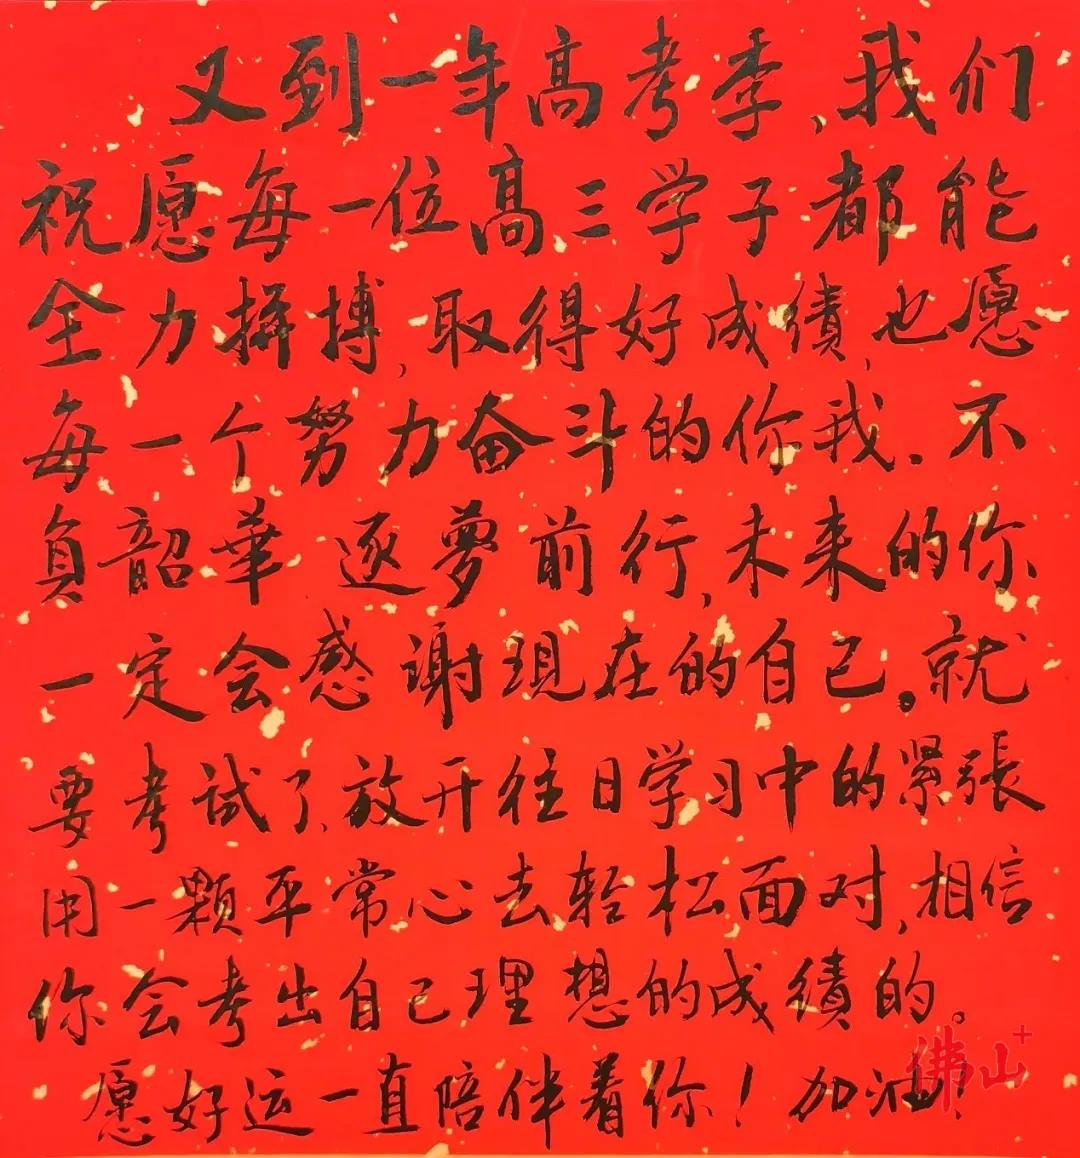 又到一年高考季,我们
祝愿每一位高三学子都能
全力拼搏,取得好成绩,也愿
每一个努力奋斗的你我.不
负韶华 逐夢前行,未来的你
一定会感谢现在的自己。就
要考试了,放开往日学习中的紧張
用一颗平常心去轻松面对,相信
你会考出自己理想的成绩的。
愿好运一直陪伴着你！加油！
佛山+